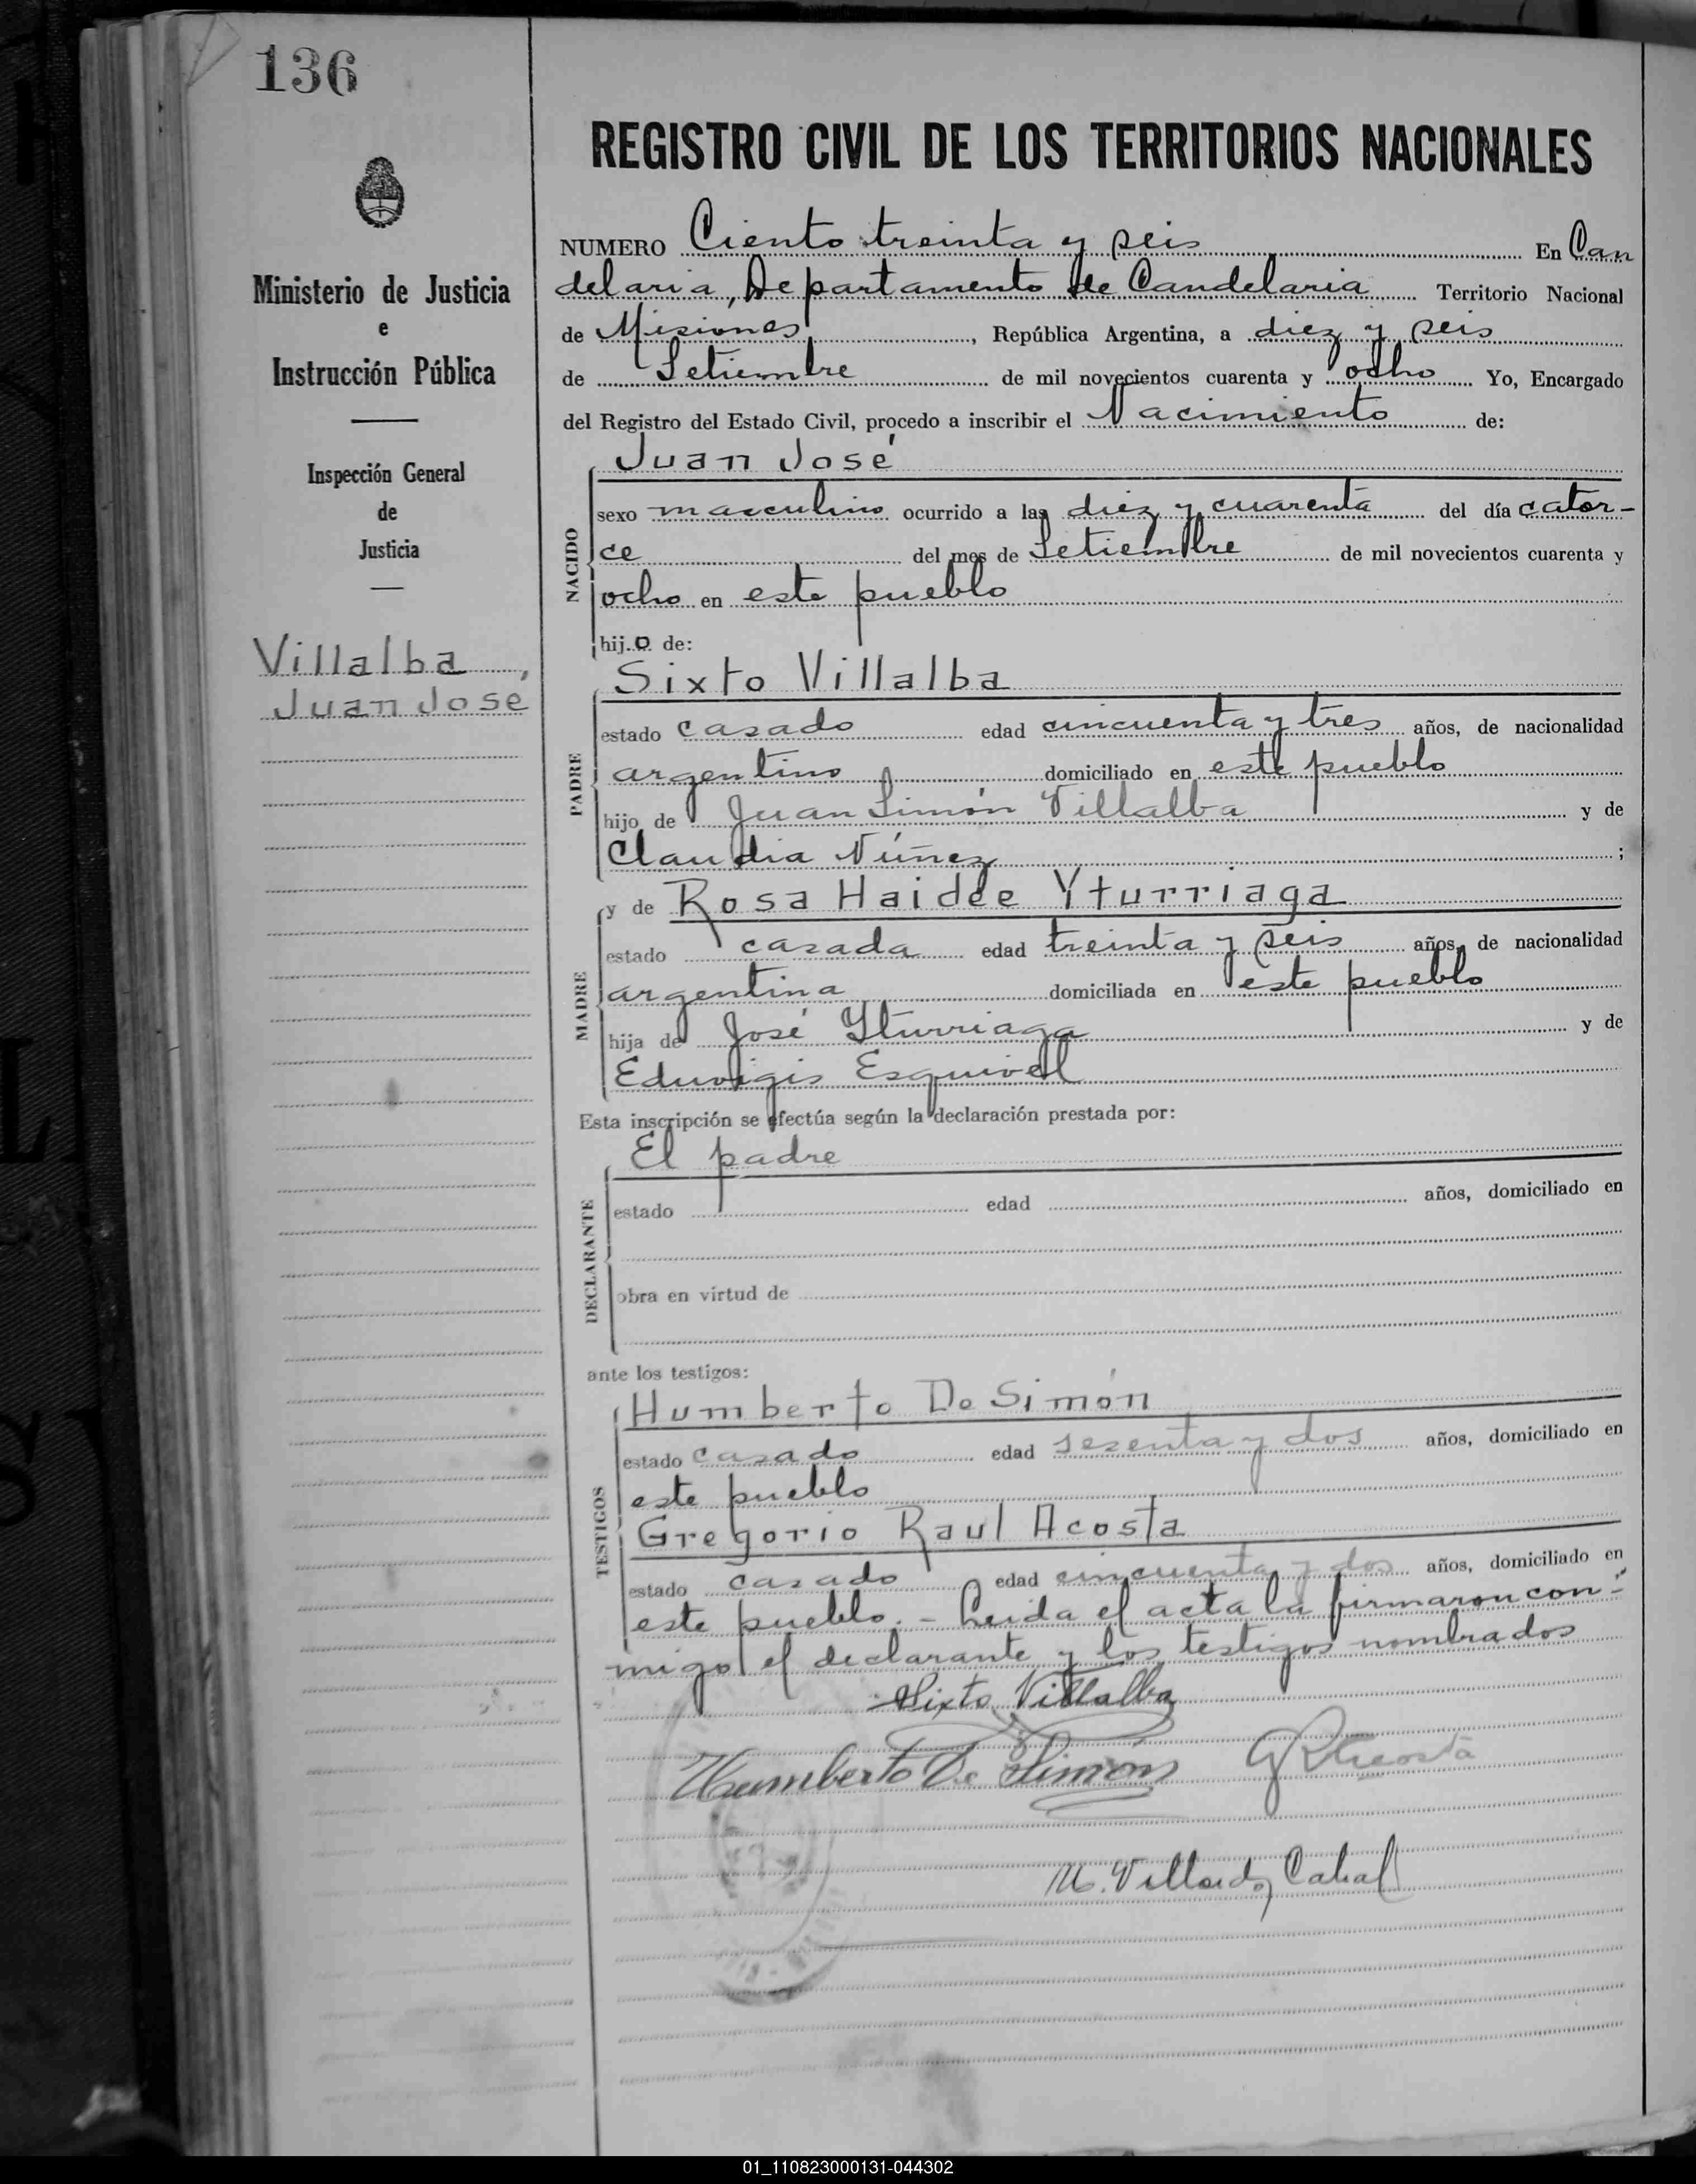 136
Ministerio de Justicia
e
Instrucción Pública
Inspección General
de
Justicia
Villalba,
Juan José
REGISTRO CIVIL DE LOS TERRITORIOS NACIONALES
NUMERO Ciento treinta y seis En Can
delaria, Departamento de Candelaria Territorio Nacional
de Misiones, República Argentina, a diez y seis
de Setiembre de mil novecientos cuarenta y ocho Yo, Encargado
del Registro del Estado Civil, procedo a inscribir el Nacimiento de:
NACIDO
Juan José
sexo masculino ocurrido a las diez y cuarenta del día cator-
ce del mes de Setiembre de mil novecientos cuarenta y
ocho en este pueblo
hijo de:
PADRE
Sixto Villalba
estado casado edad cincuenta y tres años, de nacionalidad
argentino domiciliado en este pueblo
hijo de Juan Simón Villalba y de
Claudia Núñez;
MADRE
y de Rosa Haidée Yturriaga
estado casada edad treinta y seis años, de nacionalidad
argentina domiciliada en este pueblo
hija de José Yturriaga y de
Eduvigis Esquivel
Esta inscripción se efectúa según la declaración prestada por:
DECLARANTE
El padre
estado edad años, domiciliado en
obra en virtud de
ante los testigos:
TESTIGOS
Humberto De Simón
estado casado edad sesenta y dos años, domiciliado en
este pueblo
Gregorio Raul Acosta
estado casado edad cincuenta y dos años, domiciliado en
este pueblo. - Leida el acta la firmaron con-
migo el declarante y los testigos nombrados
Sixto Villalba
Humberto De Simón G R Acosta
M. Cabal
01_110823000131-044302